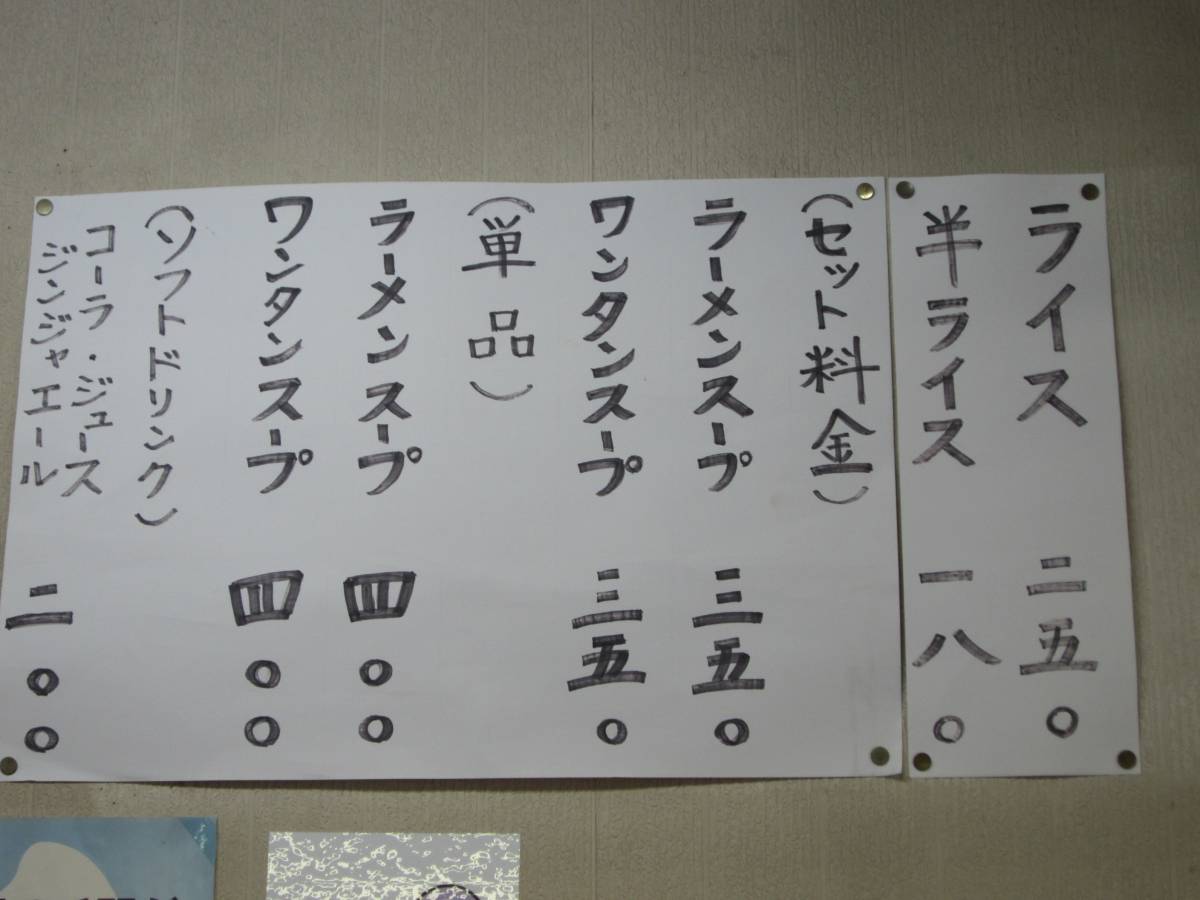 ライス 二五〇
半ライス 一八〇
(セット料金)
ラーメンスープ 三五〇
ワンタンスープ 三五〇
(単品)
ラーメンスープ 四〇〇
ワンタンスープ 四〇〇
(ソフトドリンク)
コーラ・ジュース
ジンジャエール 二〇〇